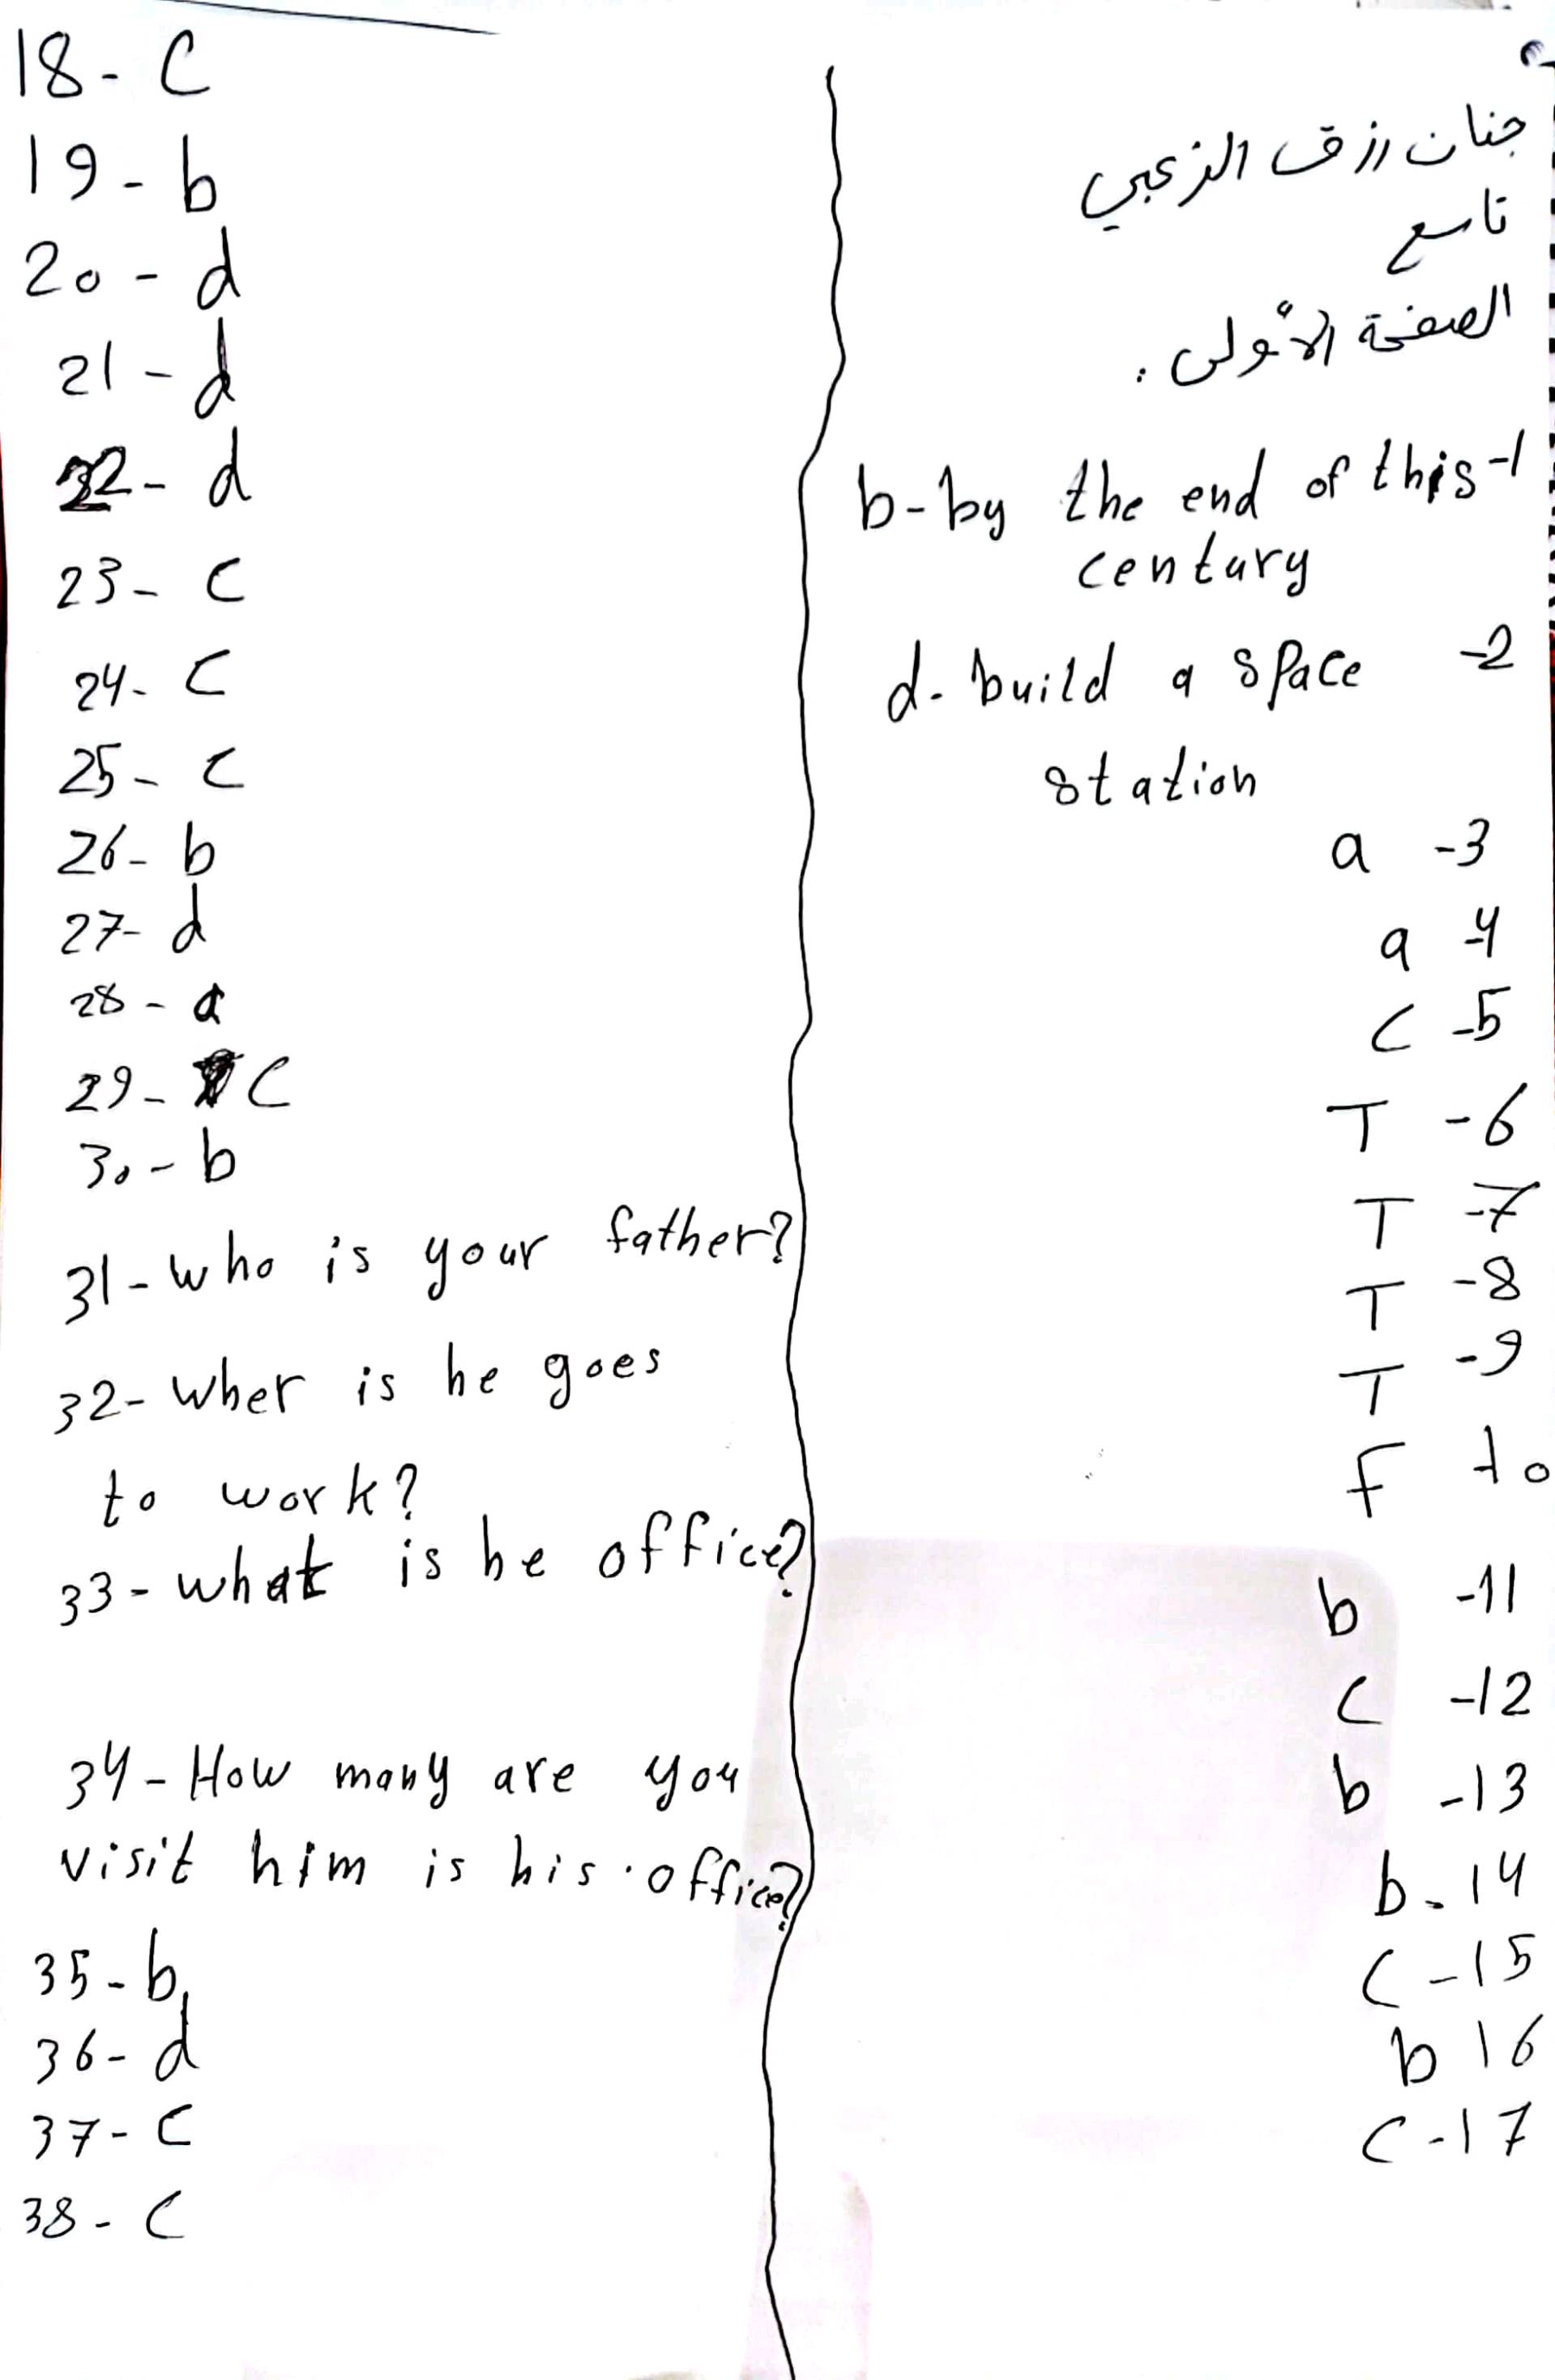 جنان رزق الزعبي
تاسع
الصفحة الأولى :
b-by the end of this -1
century
d- build a space -2
station
a -3
a -4
c -5
T -6
T -7
T -8
T -9
F -10
b -11
c -12
b -13
b - 14
c - 15
b 16
c - 17
18 - c
19 - b
20 - d
21 - d
22 - d
23 - c
24 - c
25 - c
26 - b
27 - d
28 - a
29 - c
30 - b
31 - who is your father?
32 - wher is he goes
to work?
33 - what is he office?
34 - How many are you
visit him is his office?
35 - b
36 - d
37 - c
38 - c